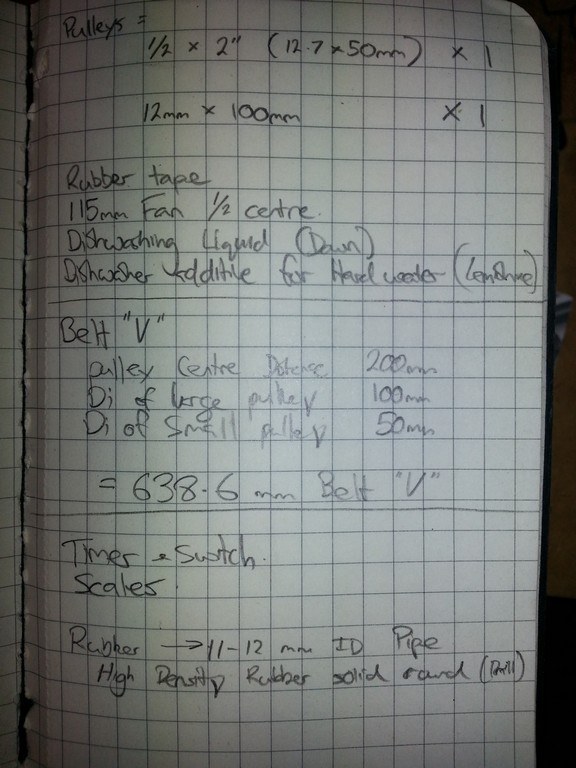 Pulleys =
1/2 x 2" (12.7 x 50mm) x 1
12mm x 100mm x 1
Rubber tape
115mm Fan 1/2 centre.
Dishwashing Liquid (Dawn)
Dishwasher Additive for Hard water (Lemishine)
Belt "V"
Pulley Centre Distance 200mm
Di of large pulley 100mm
Di of Small pulley 50mm
= 638.6 mm Belt "V"
Timer & Switch.
Scales.
Rubber → 11-12 mm ID Pipe
High Density Rubber solid round (Drill)